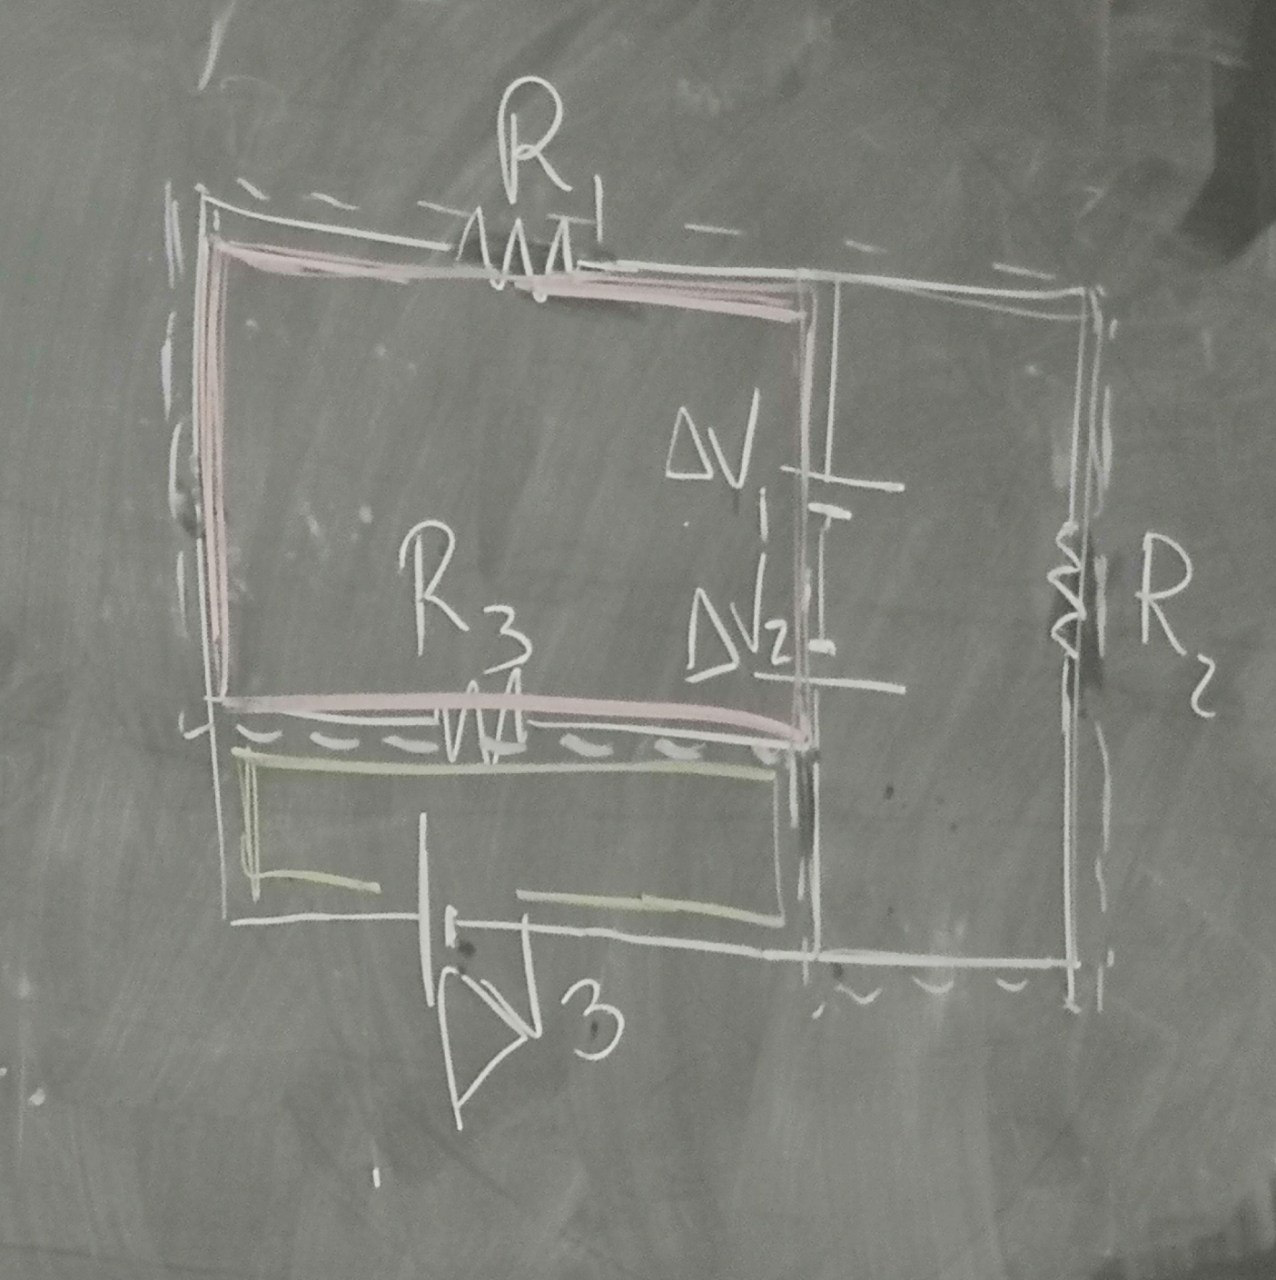 R1
ΔV1
R3
ΔV2
R2
ΔV3